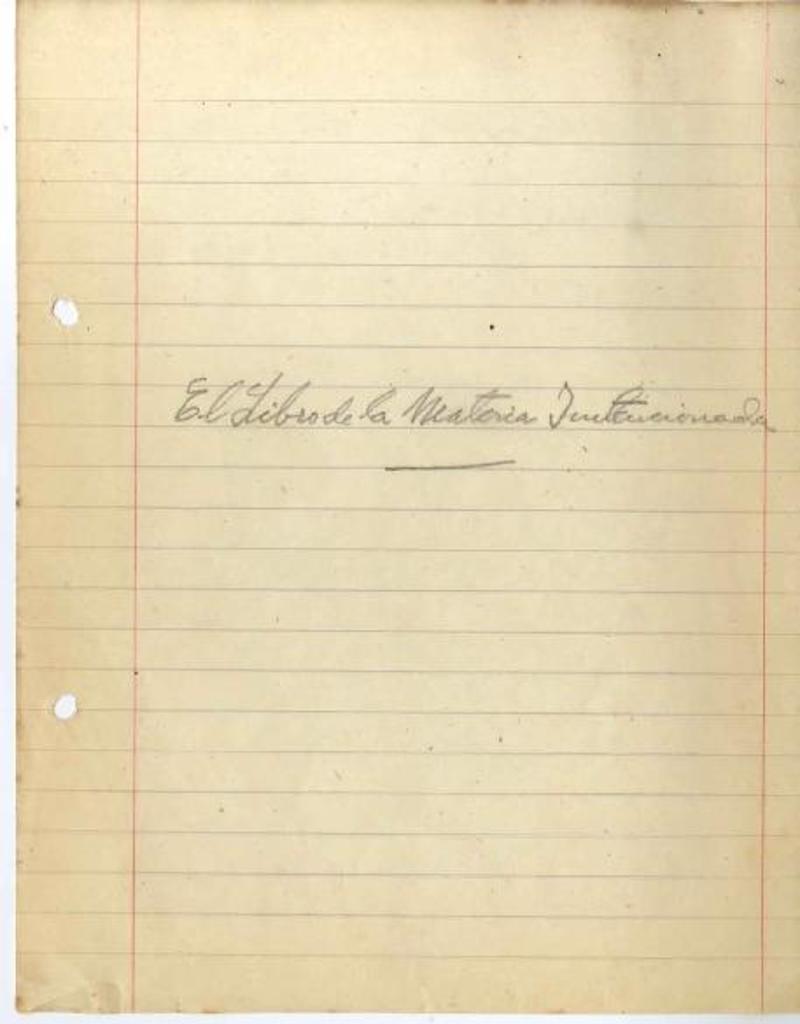 El Libro de la Materia Intencionada